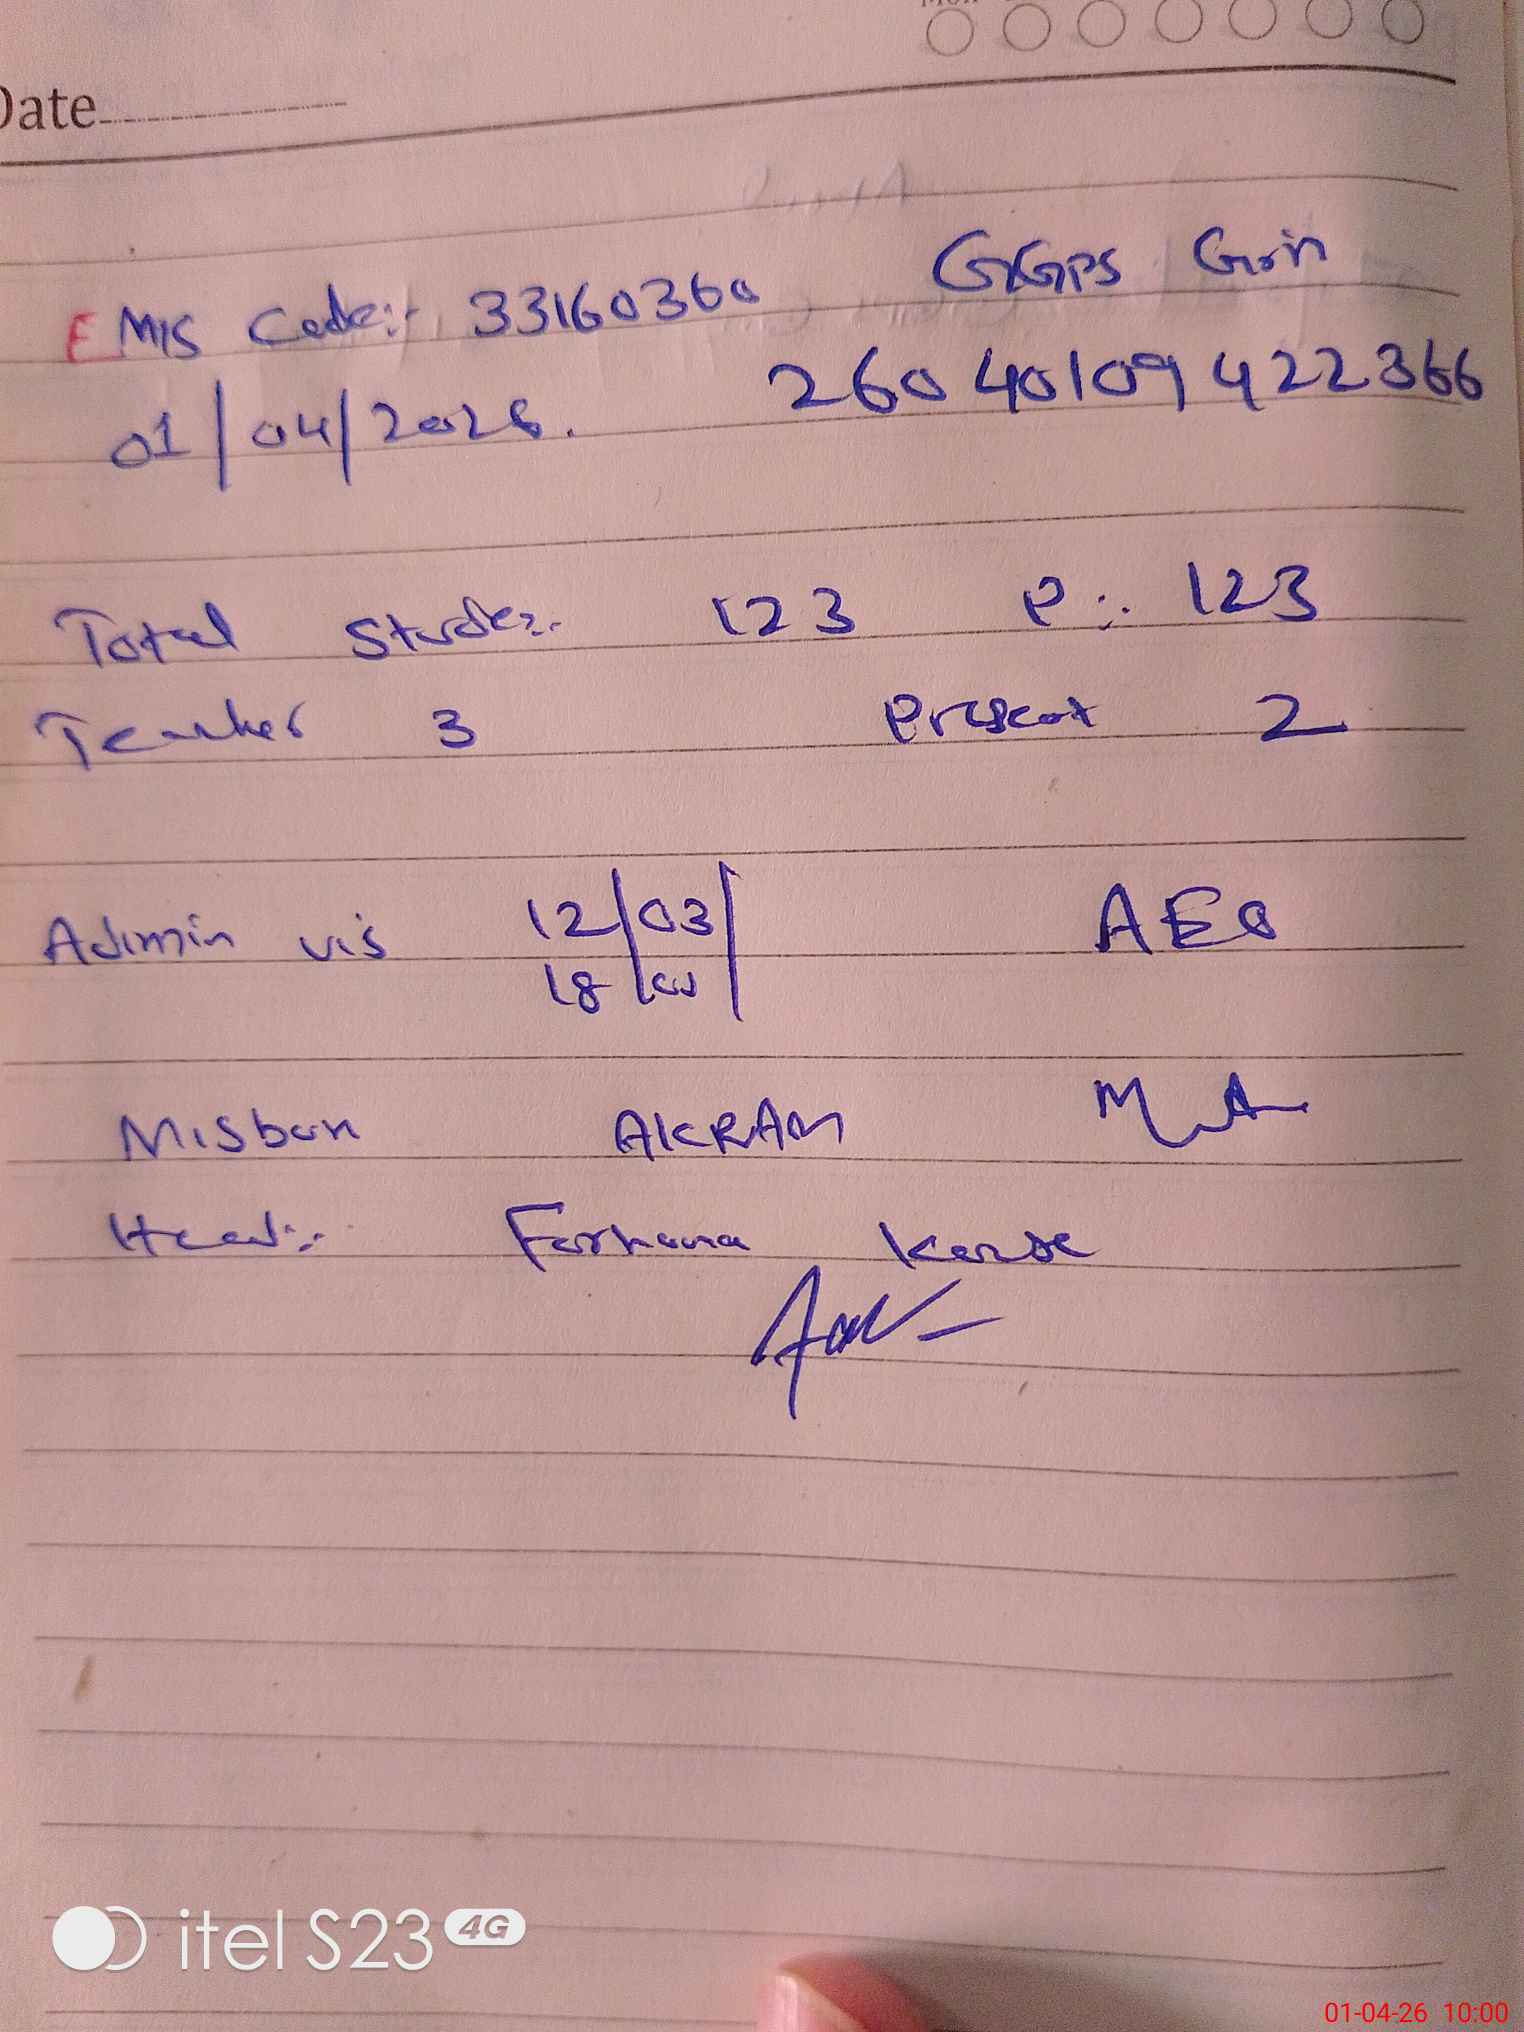 Date
EMIS Code:- 33160360 GGPS Goin
01/04/2026. 26040109422366
Total Stude:. 123 P:. 123
Teacher 3 Present 2
Admin vis 12/03/ AEO
18/03
Misbah AKRAM
Head:. Farhana
itel S23 4G
01-04-26 10:00